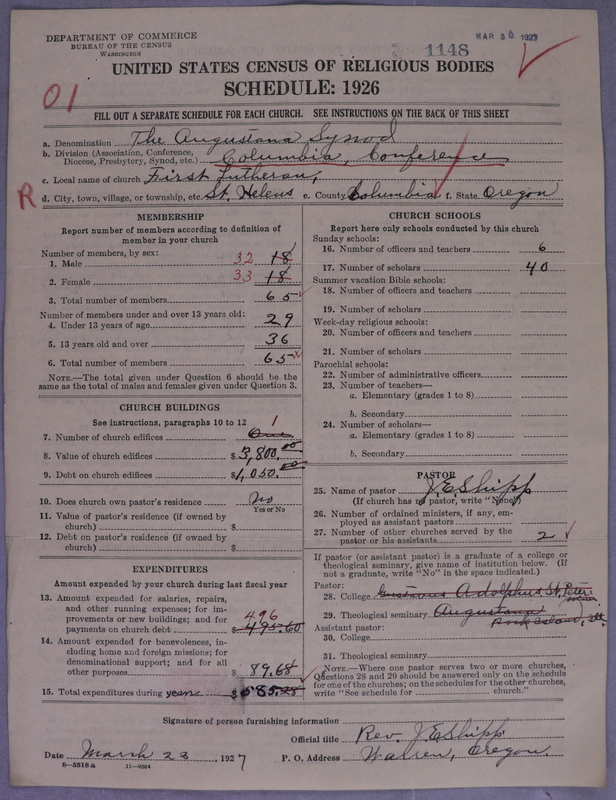 DEPARTMENT OF COMMERCE
BUREAU OF THE CENSUS
WASHINGTON
MAR 30 1927
1148
UNITED STATES CENSUS OF RELIGIOUS BODIES
SCHEDULE: 1926
01
FILL OUT A SEPARATE SCHEDULE FOR EACH CHURCH. SEE INSTRUCTIONS ON THE BACK OF THIS SHEET
a. Denomination The Augustana Synod
b. Division (Association, Conference, Diocese, Presbytery, Synod, etc.) Columbia, Conference
c. Local name of church First Lutheran,
R
d. City, town, village, or township, etc. St. Helens e. County Columbia f. State Oregon
MEMBERSHIP
Report number of members according to definition of
member in your church
Number of members, by sex:
1. Male 32 18
2. Female 33 18
3. Total number of members 65
Number of members under and over 13 years old:
4. Under 13 years of age 29
5. 13 years old and over 36
6. Total number of members 65 x
NOTE.—The total given under Question 6 should be the
same as the total of males and females given under Question 3.
CHURCH BUILDINGS
See instructions, paragraphs 10 to 12
7. Number of church edifices One 1
8. Value of church edifices $3,800.00
9. Debt on church edifices $1,050.00
10. Does church own pastor's residence No
Yes or No
11. Value of pastor's residence (if owned by
church) $
12. Debt on pastor's residence (if owned by
church) $
EXPENDITURES
Amount expended by your church during last fiscal year
13. Amount expended for salaries, repairs,
and other running expenses; for im-
provements or new buildings; and for 496
payments on church debt $495.60
14. Amount expended for benevolences, in-
cluding home and foreign missions; for
denominational support; and for all
other purposes $89.68
15. Total expenditures during year $585.28
CHURCH SCHOOLS
Report here only schools conducted by this church
Sunday schools:
16. Number of officers and teachers 6
17. Number of scholars 40
Summer vacation Bible schools:
18. Number of officers and teachers
19. Number of scholars
Week-day religious schools:
20. Number of officers and teachers
21. Number of scholars
Parochial schools:
22. Number of administrative officers
23. Number of teachers—
a. Elementary (grades 1 to 8)
b. Secondary
24. Number of scholars—
a. Elementary (grades 1 to 8)
b. Secondary
PASTOR
25. Name of pastor J.E. Shipp
(If church has no pastor, write "None")
26. Number of ordained ministers, if any, em-
ployed as assistant pastors
27. Number of other churches served by the
pastor or his assistants 2
If pastor (or assistant pastor) is a graduate of a college or
theological seminary, give name of institution below. (If
not a graduate, write "No" in the space indicated.)
Pastor:
28. College Gustavus Adolphus St. Peter Minn
29. Theological seminary Augustana
Rock Island, Ill
Assistant pastor:
30. College
31. Theological seminary
NOTE.—Where one pastor serves two or more churches,
Questions 28 and 29 should be answered only on the schedule
for one of the churches; on the schedules for the other churches,
write "See schedule for church."
Signature of person furnishing information
Official title Rev. J.E. Shipp
Date March 23 1927 P. O. Address Warren, Oregon.
8-5518a 11-9564